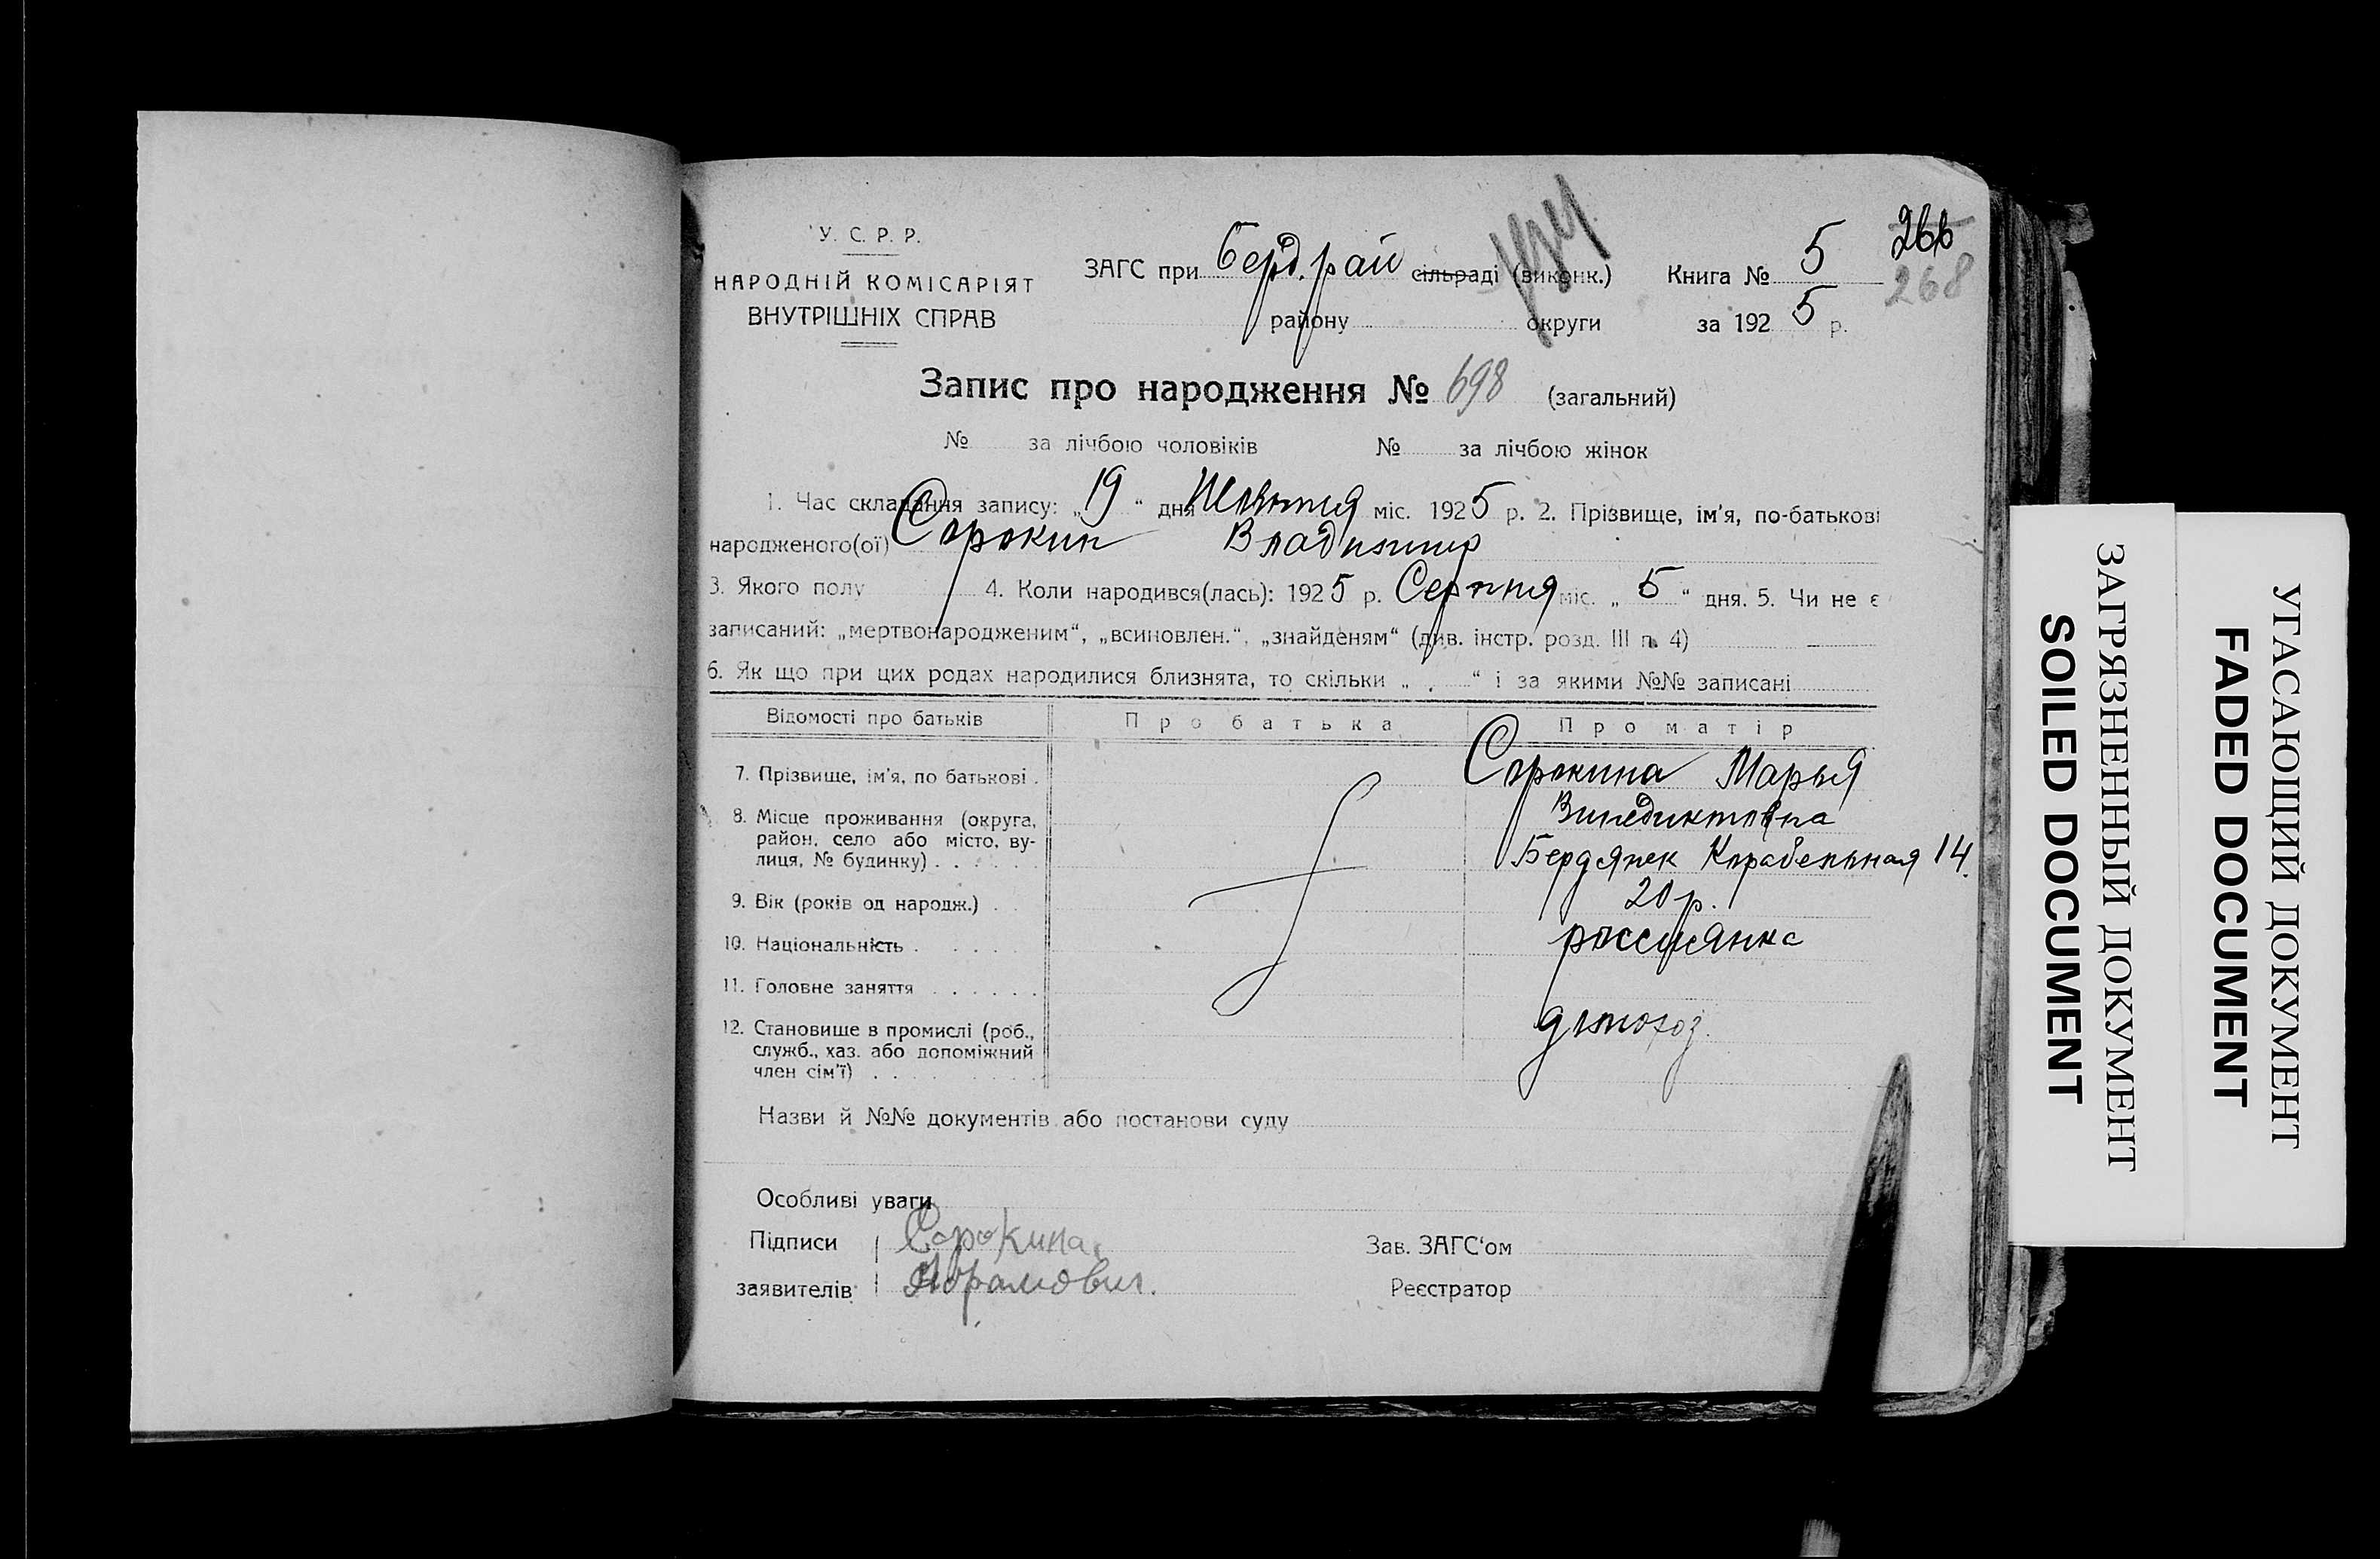 У. С. Р. Р.
НАРОДНІЙ КОМІСАРІЯТ
ВНУТРІШНІХ СПРАВ
ЗАГС при Берд. рай сільраді (виконк.)
району округи
Книга № 5 266
268
за 192 5 р.
Запис про народження № 698 (загальний)
№ за лічбою чоловіків № за лічбою жінок
1. Час складання запису: „ 19 “ дня Жовтня міс. 192 5 р. 2. Прізвище, ім'я, по-батькові
народженого(ої) Сорокин Владимир
3. Якого полу 4. Коли народився(лась): 192 5 р. Серпня міс. „ 5 “ дня. 5. Чи не є
записаний: „мертвонародженим“, „всиновлен.“, „знайденям“ (див. інстр. розд. III п. 4)
6. Як що при цих родах народилися близнята, то скільки „ “ і за якими №№ записані
Відомості про батьків Про батька Про матір
7. Прізвище, ім'я, по батькові . Сорокина Марья
Винедиктовна
8. Місце проживання (округа,
район, село або місто, ву-
лиця, № будинку) . . . . . Бердянск Корабельная 14.
9. Вік (років од народж.) . . 20 р.
10. Національність . . . . . россиянка
11. Головне заняття . . . . . .
12. Становище в промислі (роб.,
служб., хаз. або допоміжний
член сім'ї) . . . . . . . домохоз.
Назви й №№ документів або постанови суду
Особливі уваги
Підписи Сорокина
заявителів Абрамович.
Зав. ЗАГС‘ом
Реєстратор
ЗАГРЯЗНЕННЫЙ ДОКУМЕНТ
SOILED DOCUMENT
УГАСАЮЩИЙ ДОКУМЕНТ
FADED DOCUMENT